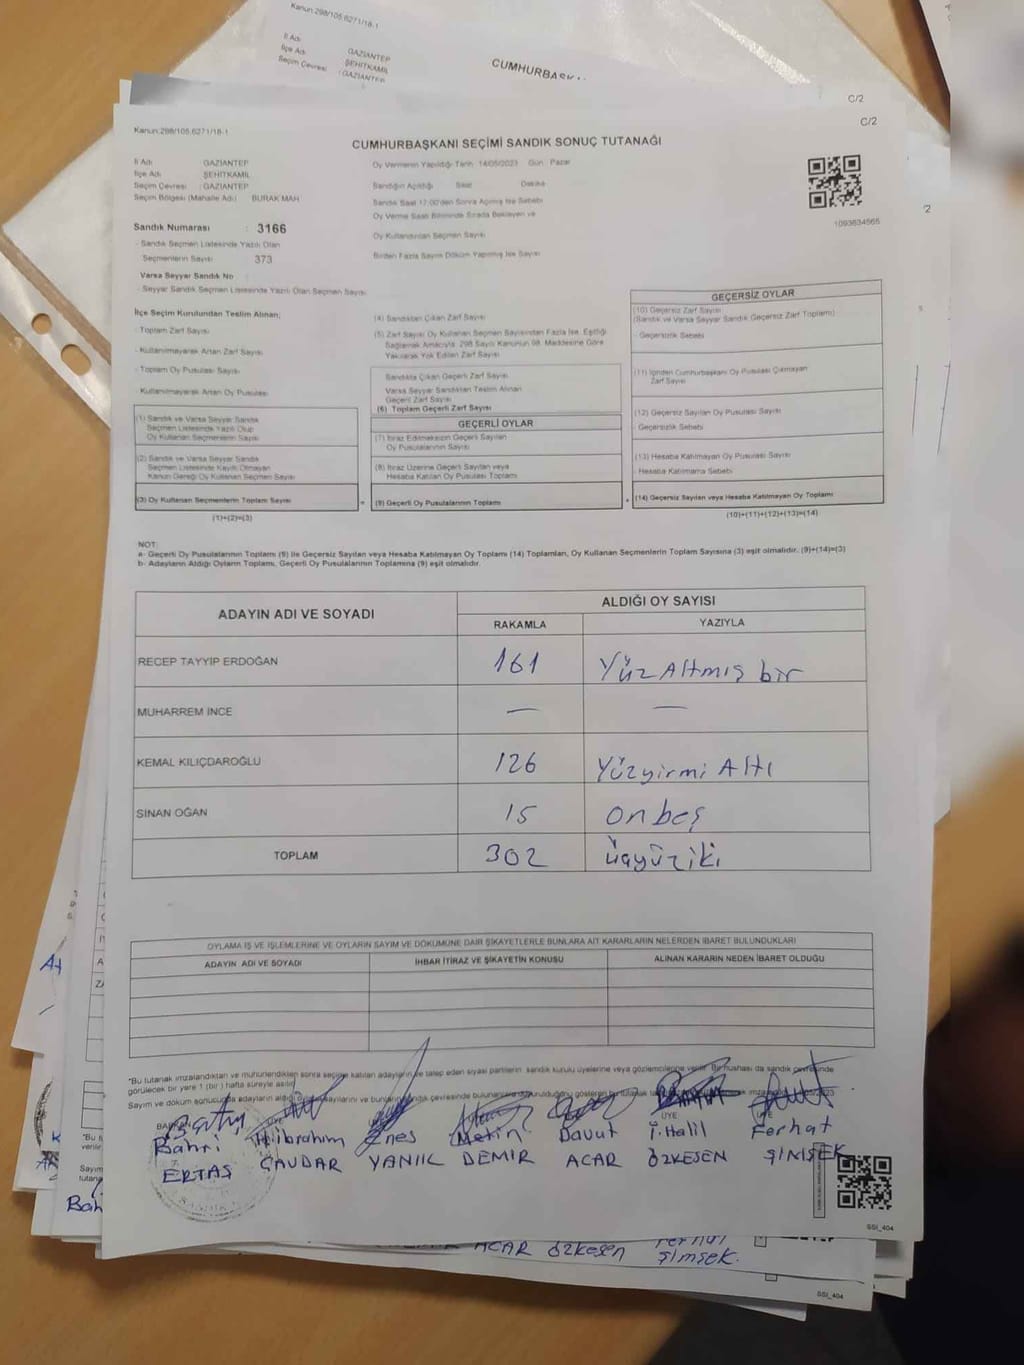 Kanun:298/105,6271/18-1
İl Adı
İlçe Adı
Seçim Çevresi
GAZİANTEP
ŞEHİTKAMİL
: GAZİANTEP
C/2
Kanun:298/105,6271/18-1
C/2
CUMHURBAŞKANI SEÇİMİ SANDIK SONUÇ TUTANAĞI
İl Adı GAZİANTEP
İlçe Adı ŞEHİTKAMİL
Seçim Çevresi : GAZİANTEP
Seçim Bölgesi (Mahalle Adı) BURAK MAH
Sandık Numarası : 3166
- Sandık Seçmen Listesinde Yazılı Olan
Seçmenlerin Sayısı 373
Varsa Seyyar Sandık No
- Seyyar Sandık Seçmen Listesinde Yazılı Olan Seçmen Sayısı
Oy Vermenin Yapıldığı Tarih 14/05/2023 Gün : Pazar
Sandığın Açıldığı Saat Dakika
Sandık Saat 17:00'den Sonra Açılmış İse Sebebi
Oy Verme Saati Bitiminde Sırada Bekleyen ve
Oy Kullandırılan Seçmen Sayısı
Birden Fazla Sayım Döküm Yapılmış İse Sayısı
1093634565
İlçe Seçim Kurulundan Teslim Alınan;
- Toplam Zarf Sayısı
- Kullanılmayarak Artan Zarf Sayısı
- Toplam Oy Pusulası Sayısı
- Kullanılmayarak Artan Oy Pusulası
(1) Sandık ve Varsa Seyyar Sandık
Seçmen Listesinde Yazılı Olup
Oy Kullanan Seçmenlerin Sayısı
(2) Sandık ve Varsa Seyyar Sandık
Seçmen Listesinde Kayıtlı Olmayan
Kanun Gereği Oy Kullanan Seçmen Sayısı
(3) Oy Kullanan Seçmenlerin Toplam Sayısı
(1)+(2)=(3)
(4) Sandıktan Çıkan Zarf Sayısı
(5) Zarf Sayısı Oy Kullanan Seçmen Sayısından Fazla İse, Eşitliği
Sağlamak Amacıyla, 298 Sayılı Kanunun 98. Maddesine Göre
Yakılarak Yok Edilen Zarf Sayısı
Sandıkta Çıkan Geçerli Zarf Sayısı
Varsa Seyyar Sandıktan Teslim Alınan
Geçerli Zarf Sayısı
(6) Toplam Geçerli Zarf Sayısı
GEÇERLİ OYLAR
(7) İtiraz Edilmeksizin Geçerli Sayılan
Oy Pusulalarının Sayısı
(8) İtiraz Üzerine Geçerli Sayılan veya
Hesaba Katılan Oy Pusulası Toplamı
(9) Geçerli Oy Pusulalarının Toplamı
GEÇERSİZ OYLAR
(10) Geçersiz Zarf Sayısı
(Sandık ve Varsa Seyyar Sandık Geçersiz Zarf Toplamı)
- Geçersizlik Sebebi
(11) İçinden Cumhurbaşkanı Oy Pusulası Çıkmayan
Zarf Sayısı
(12) Geçersiz Sayılan Oy Pusulası Sayısı
Geçersizlik Sebebi
(13) Hesaba Katılmayan Oy Pusulası Sayısı
Hesaba Katılmama Sebebi
(14) Geçersiz Sayılan veya Hesaba Katılmayan Oy Toplamı
(10)+(11)+(12)+(13)=(14)
NOT:
a- Geçerli Oy Pusulalarının Toplamı (9) ile Geçersiz Sayılan veya Hesaba Katılmayan Oy Toplamı (14) Toplamları, Oy Kullanan Seçmenlerin Toplam Sayısına (3) eşit olmalıdır. (9)+(14)=(3)
b- Adayların Aldığı Oyların Toplamı, Geçerli Oy Pusulalarının Toplamına (9) eşit olmalıdır.
ADAYIN ADI VE SOYADI
ALDIĞI OY SAYISI
RAKAMLA YAZIYLA
RECEP TAYYIP ERDOĞAN 161 Yüz Altmış bir
MUHARREM İNCE — —
KEMAL KILIÇDAROĞLU 126 Yüzyirmi Altı
SİNAN OĞAN 15 onbeş
TOPLAM 302 üçyüziki
OYLAMA İŞ VE İŞLEMLERİNE VE OYLARIN SAYIM VE DÖKÜMÜNE DAİR ŞİKAYETLERLE BUNLARA AİT KARARLARIN NELERDEN İBARET BULUNDUKLARI
ADAYIN ADI VE SOYADI İHBAR İTİRAZ VE ŞİKAYETİN KONUSU ALINAN KARARIN NEDEN İBARET OLDUĞU
"Bu tutanak imzalandıktan ve mühürlendikten sonra seçime katılan adayların ve talep eden siyasi partilerin sandık kurulu üyelerine veya gözlemcilerine verilir. Bir nüshası da sandık çevresinde
görülecek bir yere 1 (bir) hafta süreyle asılır.
ÜYE
Bahri H.ibrahim Enes Metin Davut İ.Halil Ferhat
ERTAŞ ÇAVDAR YANIK DEMİR ACAR ÖZKESEN ŞİMŞEK
SSI_404
ACAR özkesen
şimşek.
SSI_404